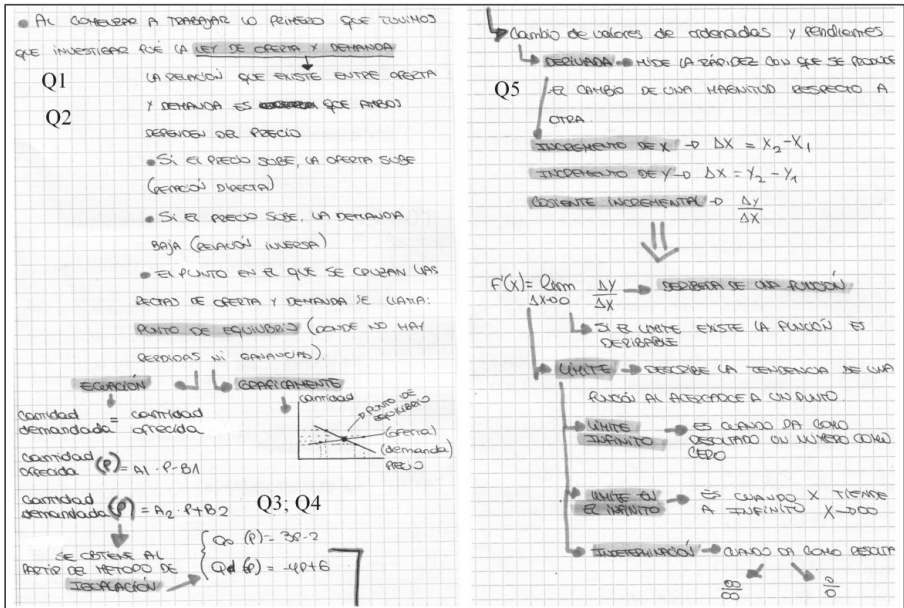 • AL COMENZAR A TRABAJAR LO PRIMERO QUE TUVIMOS
QUE INVESTIGAR FUE LA LEY DE OFERTA Y DEMANDA
Q1
LA RELACIÓN QUE EXISTE ENTRE OFERTA
Q2
Y DEMANDA ES QUE AMBOS
DEPENDEN DEL PRECIO
• Si EL PRECIO SUBE, LA OFERTA SUBE
(RELACIÓN DIRECTA)
• Si EL PRECIO SUBE, LA DEMANDA
BAJA (RELACIÓN INVERSA)
• EL PUNTO EN EL QUE SE CRUZAN LAS
RECTAS DE OFERTA Y DEMANDA SE LLAMA:
PUNTO DE EQUILIBRIO (DONDE NO HAY
PERDIDAS NI GANANCIAS).
ECUACIÓN
GRAFICAMENTE
cantidad demandada = cantidad ofrecida
cantidad
PUNTO DE EQUILIBRIO
(oferta)
(demanda)
PRECIO
cantidad ofrecida (P) = A1 · P - B1
cantidad demandada (P) = A2 · P + B2
Q3; Q4
SE OBTIENE AL
PARTIR DEL METODO DE
IGUALACIÓN
Qo (P) = 3P-2
Qd (P) = -4P+6
Cambio de valores de ordenadas y pendientes
DERIVADA → MIDE LA RÁPIDEZ CON QUE SE PRODUCE
Q5
EL CAMBIO DE UNA MAGNITUD RESPECTO A
OTRA.
INCREMENTO DE X → ΔX = X2 - X1
INCREMENTO DE Y → ΔX = Y2 - Y1
COSIENTE INCREMENTAL → ΔY/ΔX
⇓
F'(X) = lim ΔX→0 ΔY/ΔX → DERIBADA DE UNA FUNCIÓN
SI EL LIMITE EXISTE LA FUNCIÓN ES
DERIBABLE
LÍMITE → DESCRIBE LA TENDENCIA DE UNA
FUNCIÓN AL ACERCARCE A UN PUNTO
LÍMITE INFINITO → ES CUANDO DA COMO
RESULTADO UN NÚMERO COMO
CERO
LIMITE EN EL INFINITO → ES CUANDO X TIENDE
A INFINITO X→∞
INDETERMINACIÓN → CUANDO DA COMO RESULTA
∞/∞
0/0